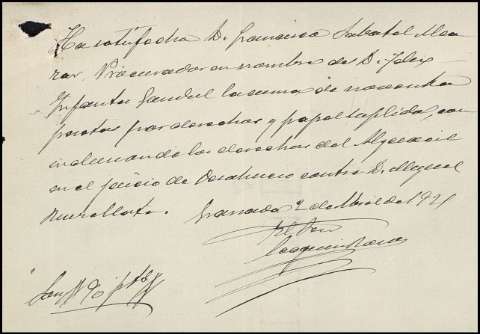 Ha satisfecho D. Francisco Sabatel Alca
zar, Procurador en nombre de D. Felix
Infante la suma de noventa
pesetas por derechos y papel suplido, con
inclusion de los derechos del Alguacil
en el juicio de Desahucio contra D. Miguel
Granada 2 de Abril de 1921
El
Joaquin
Son 90 ptas